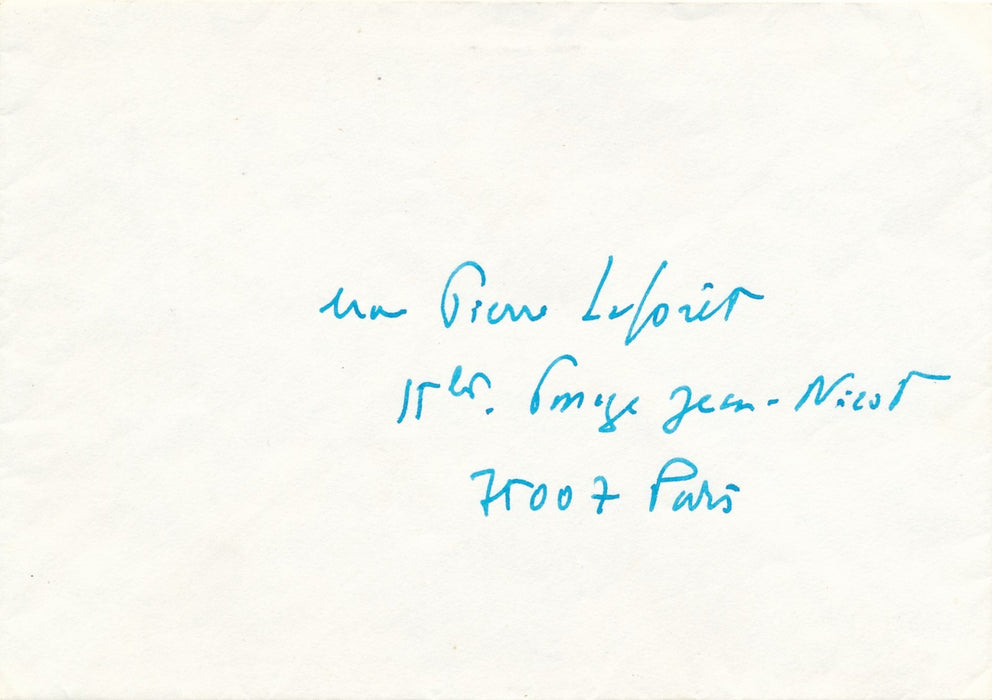 Pierre Laforêt
15 bis. Passage Jean-Nicot
75007 Paris